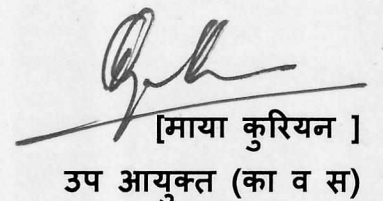 [माया कुरियन ]
उप आयुक्त (का व स)